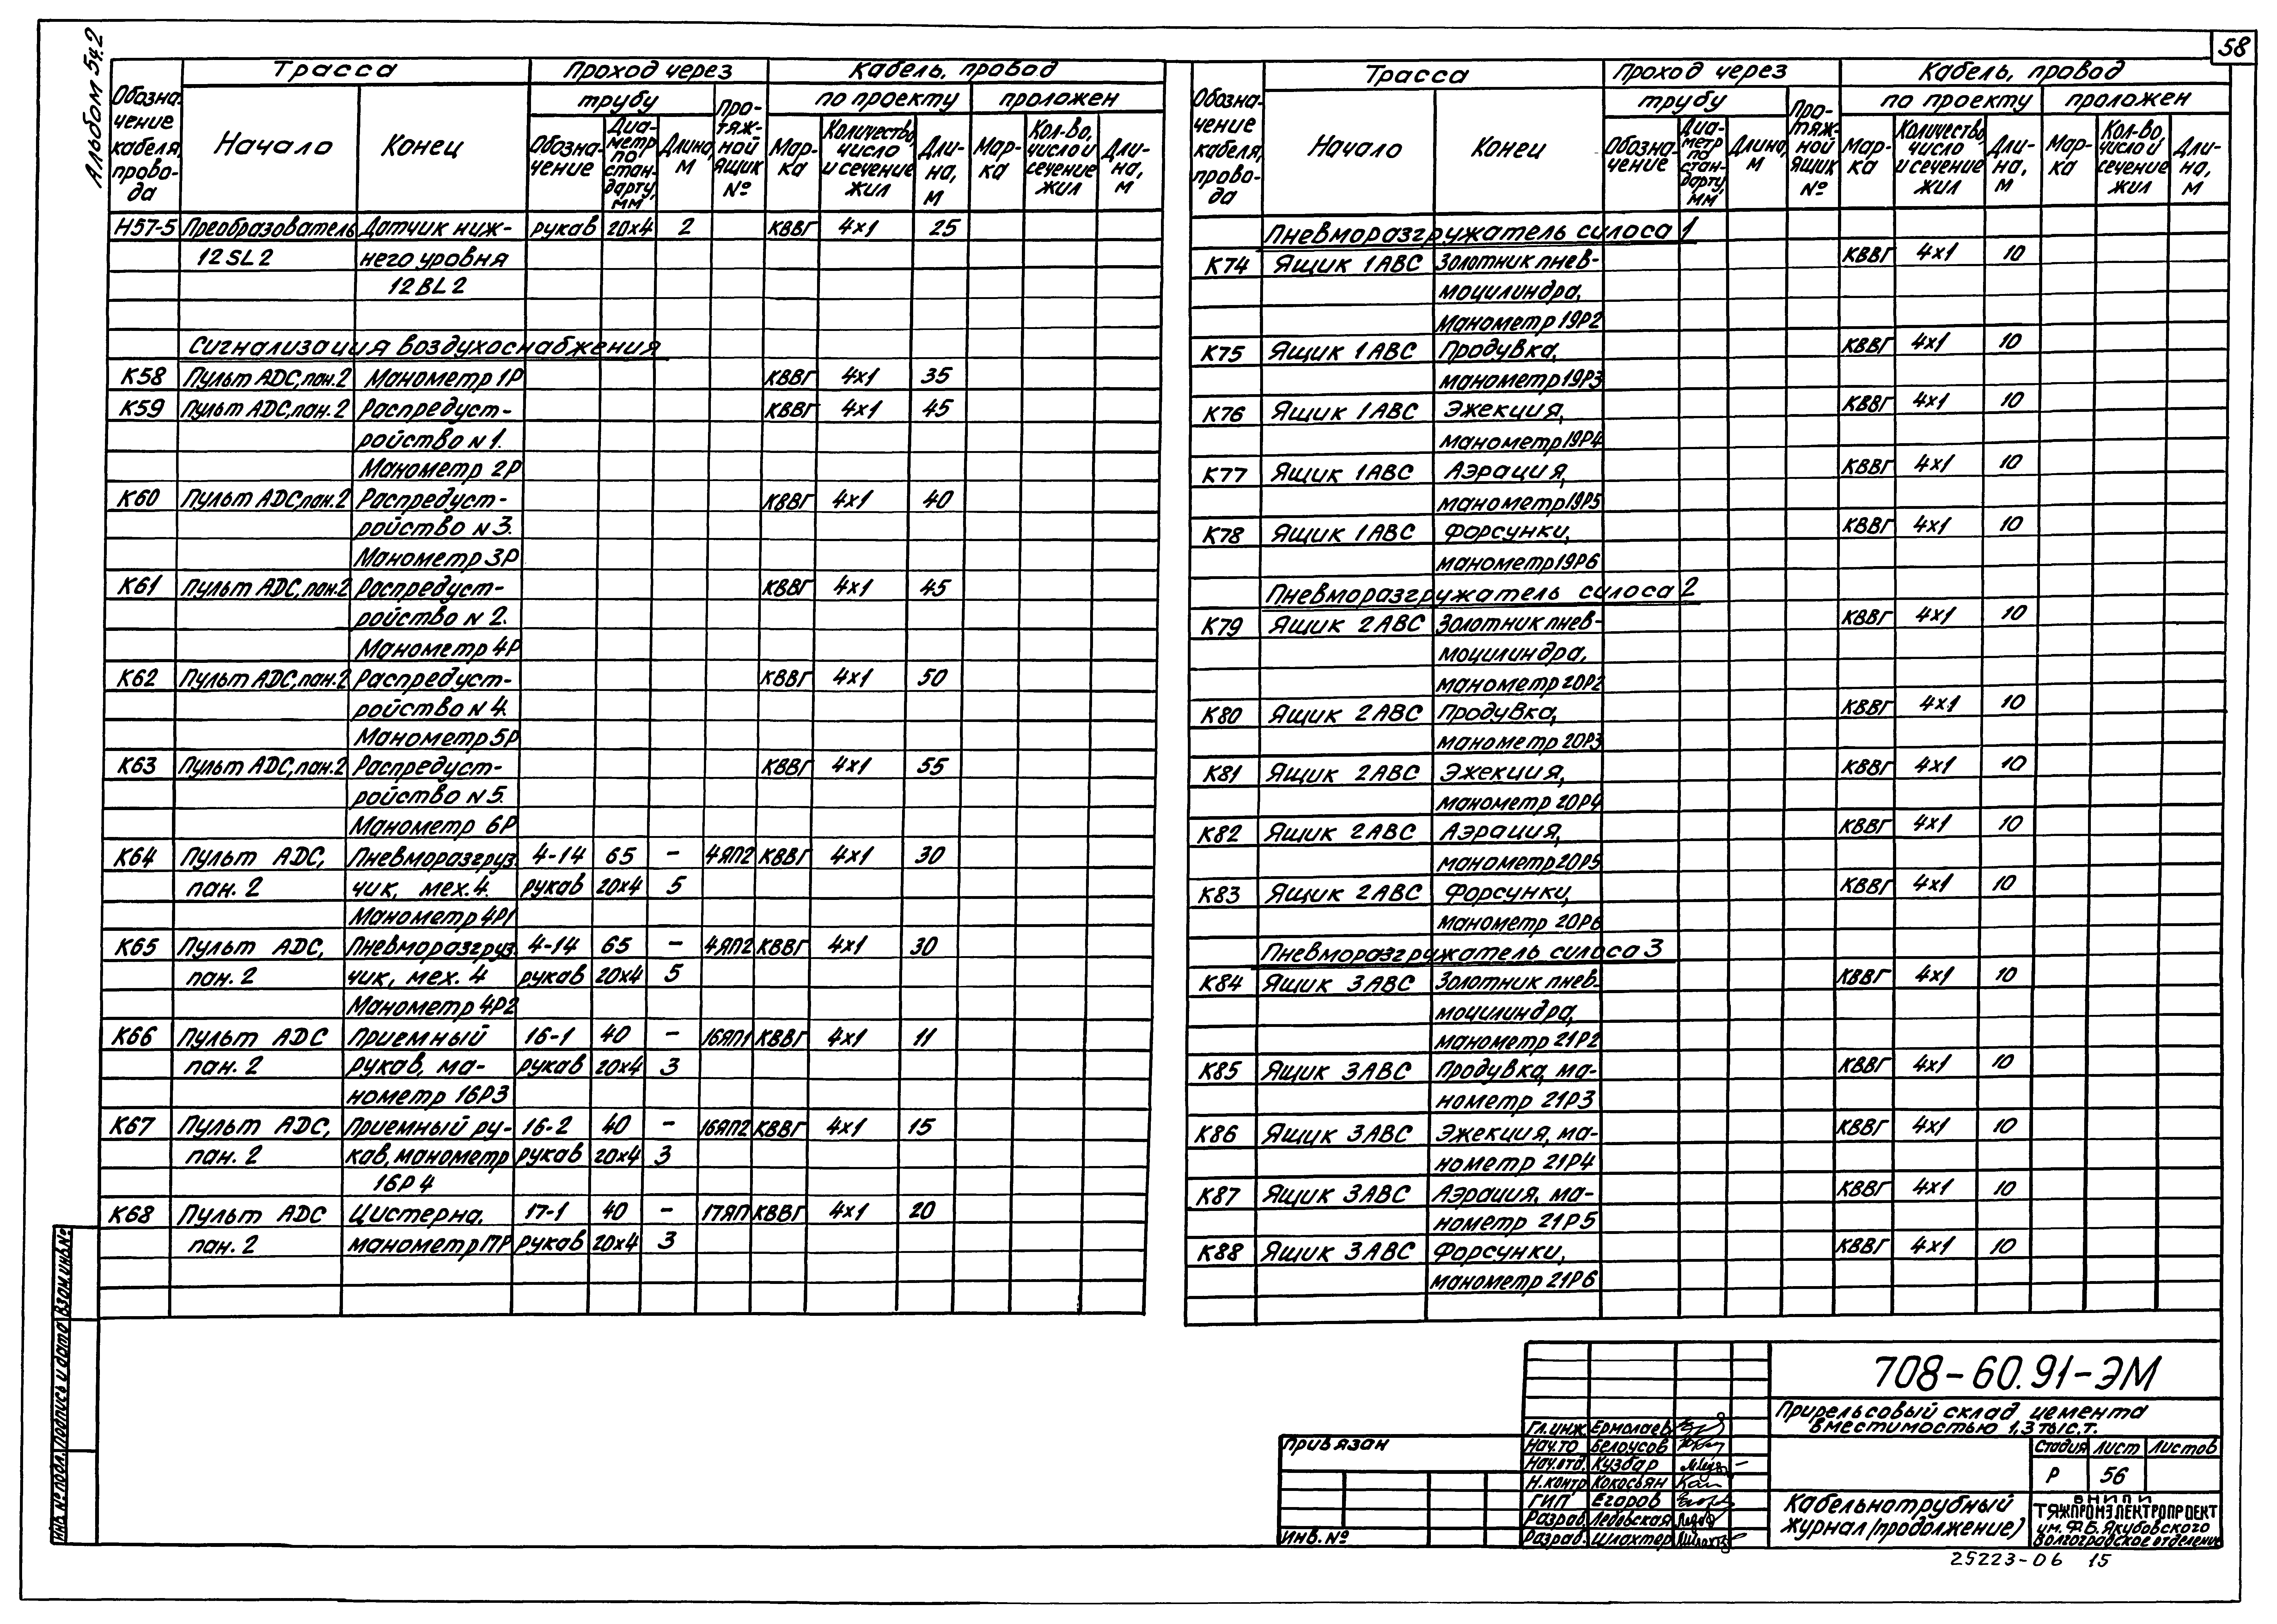 58
Альбом 5ч.2
Обозна-
чение
кабеля,
прово-
да
Трасса
Проход через
Кабель, провод
Начало
Конец
трубу
Про-
тяж-
ной
ящик
№
по проекту
проложен
Обозна-
чение
Диа-
метр
по
стан-
дарту,
мм
Длина,
м
Мар-
ка
Количество,
число
и сечение
жил
Дли-
на,
м
Мар-
ка
Кол-во,
число и
сечение
жил
Дли-
на,
м
Н57-5 Преобразователь Датчик ниж- рукав 20х4 2 КВВГ 4х1 25
12SL2 него уровня
12BL2
Сигнализация воздухоснабжения
К58 Пульт ADC, пан.2 Манометр 1Р КВВГ 4х1 35
К59 Пульт ADC, пан.2 Распредуст- КВВГ 4х1 45
ройство N1.
Манометр 2Р
К60 Пульт ADC, пан.2 Распредуст- КВВГ 4х1 40
ройство N3.
Манометр 3Р
К61 Пульт ADC, пан.2 Распредуст- КВВГ 4х1 45
ройство N2.
Манометр 4Р
К62 Пульт ADC, пан.2 Распредуст- КВВГ 4х1 50
ройство N4.
Манометр 5Р
К63 Пульт ADC, пан.2 Распредуст- КВВГ 4х1 55
ройство N5.
Манометр 6Р
К64 Пульт ADC, Пневморазгруз- 4-14 65 – 4ЯП2 КВВГ 4х1 30
пан. 2 чик, мех.4. рукав 20х4 5
Манометр 4Р1
К65 Пульт ADC, Пневморазгруз- 4-14 65 – 4ЯП2 КВВГ 4х1 30
пан. 2 чик, мех. 4 рукав 20х4 5
Манометр 4Р2
К66 Пульт ADC Приемный 16-1 40 – 16ЯП1 КВВГ 4х1 11
пан. 2 рукав, ма- рукав 20х4 3
нометр 16Р3
К67 Пульт ADC, Приемный ру- 16-2 40 – 16ЯП2 КВВГ 4х1 15
пан. 2 кав, манометр рукав 20х4 3
16Р4
К68 Пульт ADC Цистерна, 17-1 40 – 17ЯП КВВГ 4х1 20
пан. 2 манометр 17Р рукав 20х4 3
Обозна-
чение
кабеля,
прово-
да
Трасса
Проход через
Кабель, провод
Начало
Конец
трубу
Про-
тяж-
ной
ящик
№
по проекту
проложен
Обозна-
чение
Диа-
метр
по
стан-
дарту,
мм
Длина,
м
Мар-
ка
Количество,
число
и сечение
жил
Дли-
на,
м
Мар-
ка
Кол-во,
число и
сечение
жил
Дли-
на,
м
Пневморазгружатель силоса 1
К74 Ящик 1АВС Золотник пнев- КВВГ 4х1 10
моцилиндра,
Манометр 19Р2
К75 Ящик 1АВС Продувка, КВВГ 4х1 10
манометр 19Р3
К76 Ящик 1АВС Эжекция, КВВГ 4х1 10
манометр 19Р4
К77 Ящик 1АВС Аэрация, КВВГ 4х1 10
манометр 19Р5
К78 Ящик 1АВС Форсунки, КВВГ 4х1 10
манометр 19Р6
Пневморазгружатель силоса 2
К79 Ящик 2АВС Золотник пнев- КВВГ 4х1 10
моцилиндра,
манометр 20Р2
К80 Ящик 2АВС Продувка, КВВГ 4х1 10
манометр 20Р3
К81 Ящик 2АВС Эжекция, КВВГ 4х1 10
манометр 20Р4
К82 Ящик 2АВС Аэрация, КВВГ 4х1 10
манометр 20Р5
К83 Ящик 2АВС Форсунки, КВВГ 4х1 10
манометр 20Р6
Пневморазгружатель силоса 3
К84 Ящик 3АВС Золотник пнев- КВВГ 4х1 10
моцилиндра,
манометр 21Р2
К85 Ящик 3АВС Продувка, ма- КВВГ 4х1 10
нометр 21Р3
К86 Ящик 3АВС Эжекция, ма- КВВГ 4х1 10
нометр 21Р4
К87 Ящик 3АВС Аэрация, ма- КВВГ 4х1 10
нометр 21Р5
К88 Ящик 3АВС Форсунки, КВВГ 4х1 10
манометр 21Р6
Инв. № подл. Подпись и дата Взам.инв.№
Привязан
Инв. №
Гл.инж. Ермолаев
Нач.ТО Белоусов
Нач.отд. Кузбар
Н.контр. Кокосьян
ГИП Егоров
Разраб. Ледовская
Разраб. Шлахтер
708-60.91-ЭМ
Прирельсовый склад цемента
вместимостью 1,3 тыс.т.
Стадия Лист Листов
Р 56
Кабельнотрубный
журнал (продолжение)
ВНИПИ
ТЯЖПРОМЭЛЕКТРОПРОЕКТ
им. Ф.Б. Якубовского
Волгоградское отделение
25223-06 15